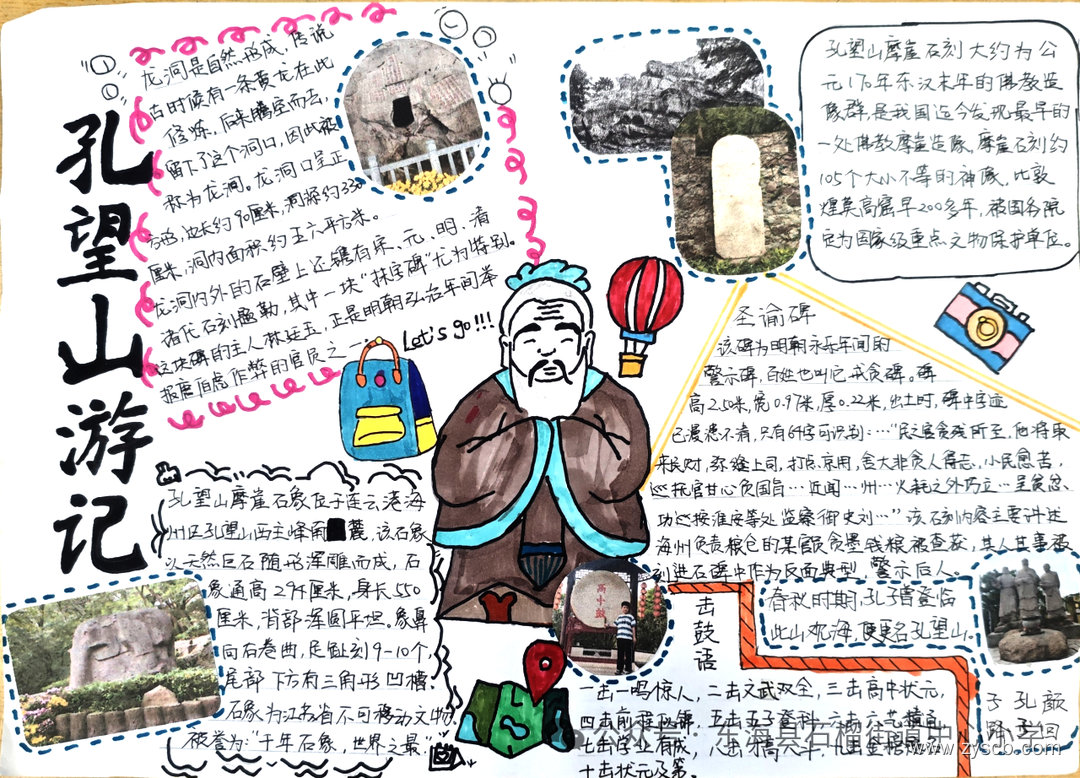 孔望山游记
龙洞是自然形成,传说
古时候有一条黄龙在此
修炼,后来腾空而去,
留下了这个洞口,因此被
称为龙洞。龙洞口呈正
方形,边长约90厘米,洞深约330
厘米,洞内面积约五六平方米。
龙洞内外的石壁上还镌有宋、元、明、清
诸代石刻题勒,其中一块"林廷玉碑"尤为特别。
这块碑的主人林廷玉,正是明朝弘治年间举
报唐伯虎作弊的官员之一。
Let's go!!!
孔望山摩崖石刻大约为公
元170年东汉末年的佛教造
像群,是我国迄今发现最早的
一处佛教摩崖造像,摩崖石刻约
105个大小不等的神像,比敦
煌莫高窟早200多年,被国务院
定为国家级重点文物保护单位。
圣谕碑
该碑为明朝永乐年间的
警示碑,百姓也叫它戒贪碑。碑
高2.50米,宽0.97米,厚0.22米,出土时,碑中字迹
已漫漶不清,只有64字可识别:…"民之官贪残所至,他将取
来民财,弥缝上司,打点京用,舍大非贪人得志,小民愈苦,
巡抚官甘心负国旨…近闻…州…火耗之外巧立…
功巡按淮安等处监察御史刘…"该石刻内容主要讲述
海州负责粮仓的某官员贪墨钱粮被查获,其人其事被
刻进石碑中作为反面典型,警示后人。
孔望山摩崖石象位于连云港海
州区孔望山西主峰南麓,该石象
以天然巨石随形浑雕而成,石
象通高294厘米,身长550
厘米,背部浑圆平坦。象鼻
向右卷曲,足趾刻9-10个,
尾部下方有三角形凹槽。
石象为江苏省不可移动文物,
被誉为:"千年石象,世界之最"
春秋时期,孔子曾登临
此山观海,便更名孔望山。
击鼓语
一击一鸣惊人,二击文武双全,三击高中状元,
四击前程似锦,五击五子登科,六击六艺精通
七击学业有成,八击才高八斗,九击金榜题名
十击状元及第。
子路
孔子
颜回
公众号:东海县石榴街道中心小学
www.zyscb.com